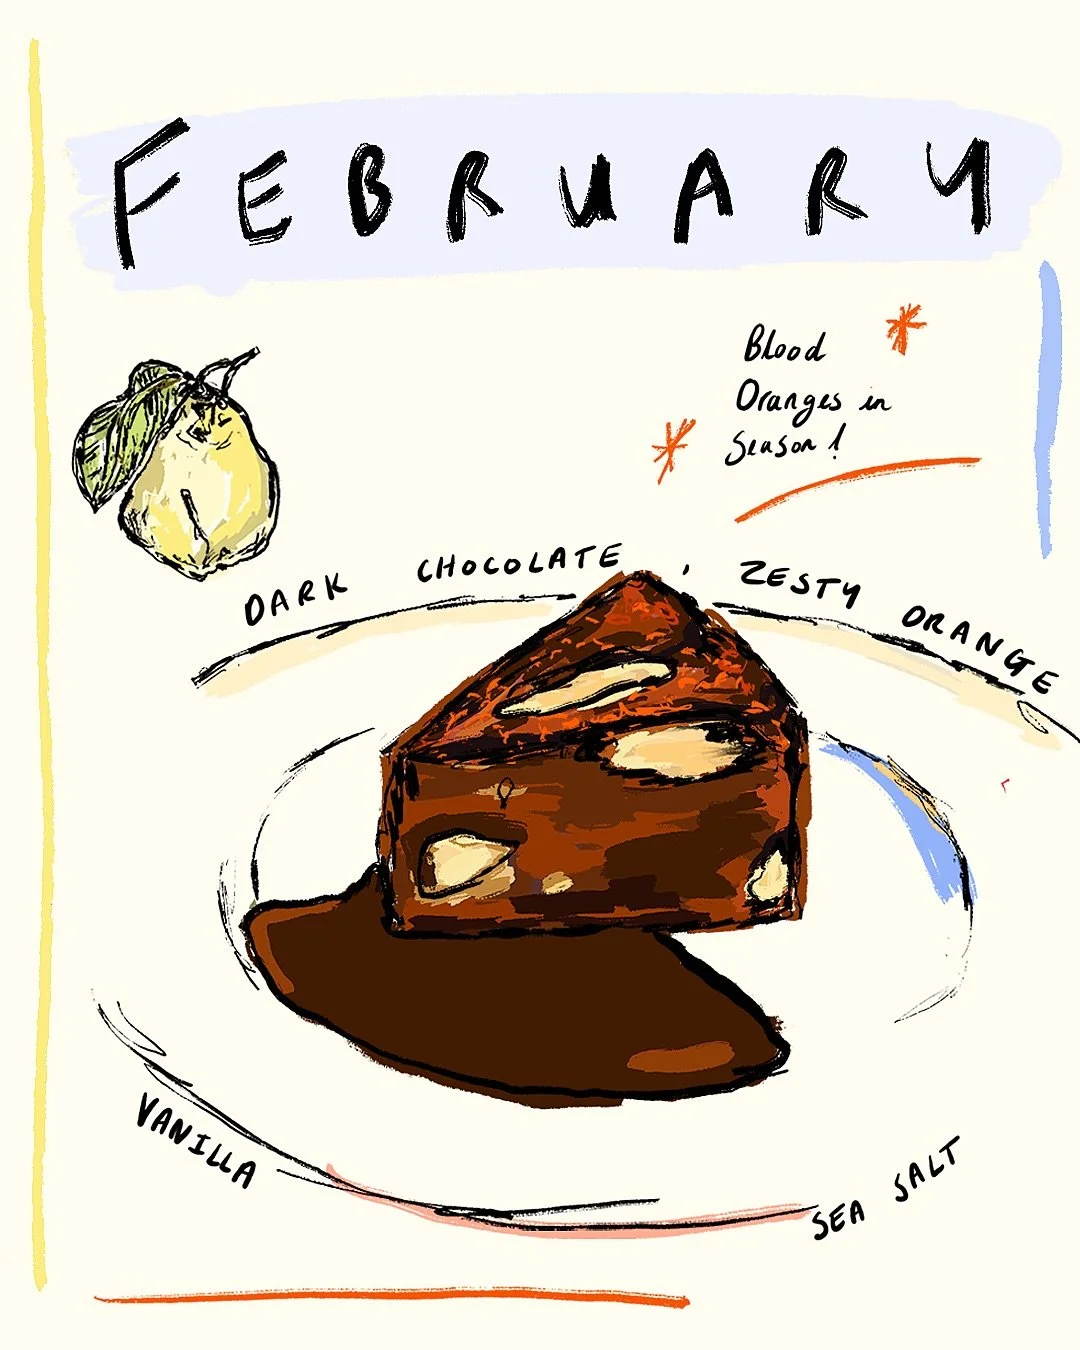 FEBRUARY
Blood
Oranges in
Season!
DARK CHOCOLATE, ZESTY ORANGE
VANILLA
SEA SALT